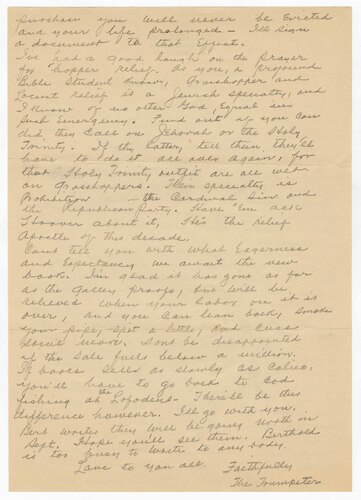 purchase you will never be Evicted
and your life prolonged – I'll sign
a document to that Effect.
I've had a good laugh on the Prayer
for 'hopper relief. As you, a profound
Bible Student know, Grasshopper and
Locust relief is a Jewish specialty, and
I know of no other God Equal in
such Emergency. Find out if you can
did they call on Jehovah or the Holy
Trinity. If the latter, tell them they'll
have to do it all over again, for
that Holy Trinity outfit are all wet
on Grasshoppers. Their specialty is
Prohibition – the Cardinal Sin and
the Republican Party. Have 'em ask
Hoover about it, He's the relief
Apostle of this decade.
Can't tell you with What Eagerness
and Expectancy we await the new
book. I'm glad it has gone as far
as the galley proofs, but Will be
relieved When your labor on it is
over, and you can lean back, smoke
your pipe, spit a little, and Cuss
some. Don't be disappointed
if the Sale falls below a million.
If books Sells as slowly as Calico,
you'll have to go back to Cod
fishing at the – There'll be this
difference however. I'll go with you.
Bert writes they will be going North in
Sept. Hope you'll see them. Berthold
is too busy to Write to any body.
Love to you all
Faithfully
The Trumpeter